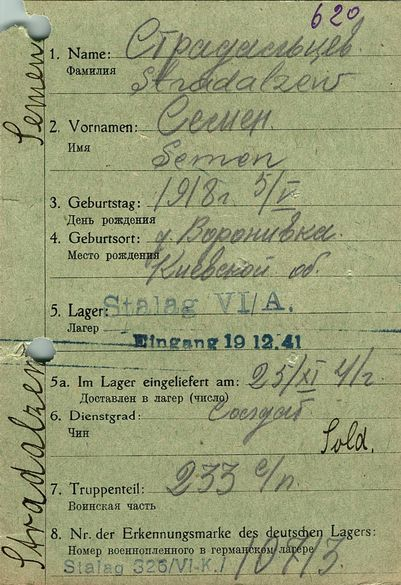 620
Semen
1. Name: Страдальцев.
Фамилия Stradalzew
2. Vornamen: Семен.
Имя
Semen
3. Geburtstag: 1918г 5/V
День рождения
4. Geburtsort: д. Воронивка.
Место рождения Киевской об.
5. Lager: Stalag VI/A.
Лагер
Eingang 19 12.41
Stradalzew
5a. Im Lager eingeliefert am: 25/XI 41г
Доставлен в лагер (число)
6. Dienstgrad: Солдат
Чин
Sold.
7. Truppenteil: 233 с/п.
Воинская часть
8. Nr. der Erkennungsmarke des deutschen Lagers:
Номер военнопленного в германском лагере
Stalag 326/VI-K.